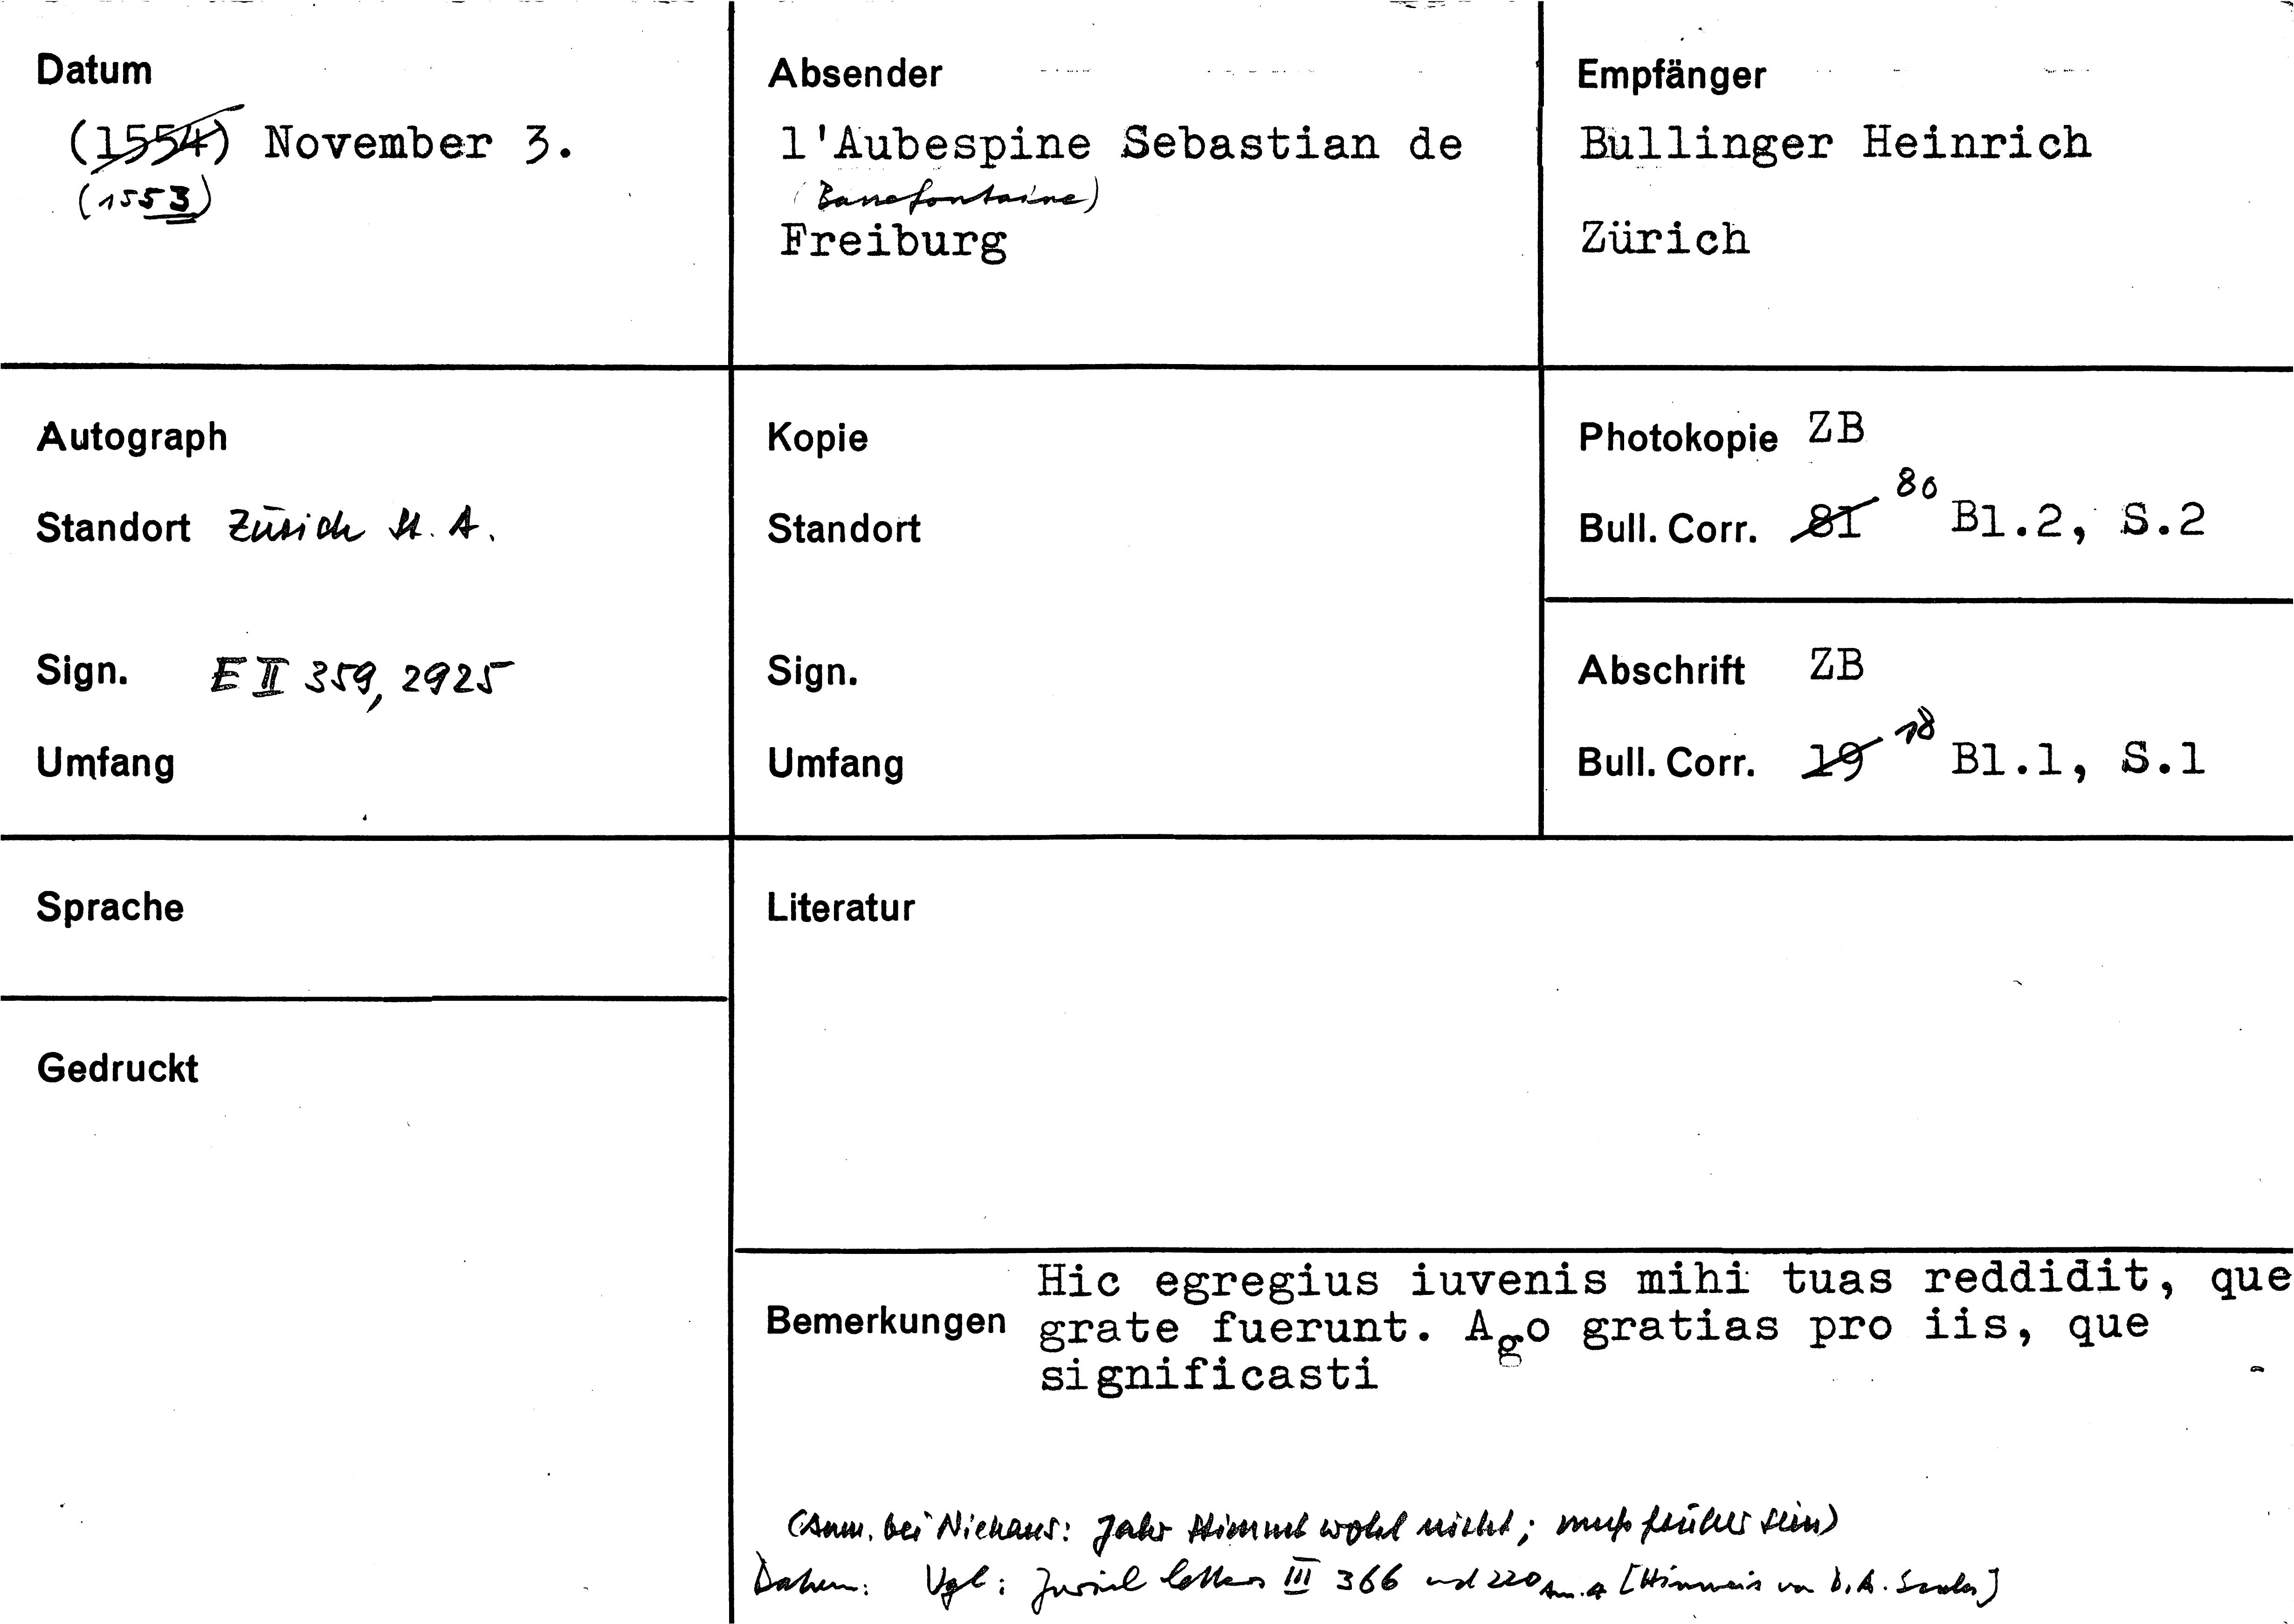 Datum
(1554) November 3.
(1553)
Absender
l'Aubespine Sebastian de
(Bassefontaine)
Freiburg
Empfänger
Bullinger Heinrich
Zürich
Autograph
Standort Zürich St. A.
Sign. E II 359, 2925
Umfang
Kopie
Standort
Sign.
Umfang
Photokopie ZB
Bull. Corr. 81 80 Bl.2, S.2
Abschrift ZB
Bull. Corr. 19 18 Bl.1, S.1
Sprache
Gedruckt
Literatur
Bemerkungen
Hic egregius iuvenis mihi tuas reddidit, que
grate fuerunt. Ago gratias pro iis, que
significasti
(Anm. bei Niehaus: Jahr stimmt wohl nicht; muss früher sein)
Datum: Vgl: Zurich letters III 366 und 220 Anm. 4 [Hinweis von